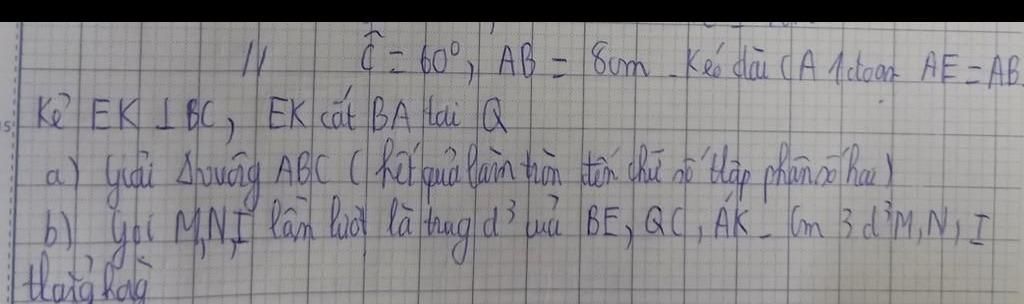 // Ĉ = 60°, AB = 8cm. Kéo dài CA 1 đoạn AE = AB.
Kẻ EK ⊥ BC, EK cắt BA tại Q
a) Giải Δvuông ABC (kết quả làm tròn đến chữ số thập phân số hai)
b) Gọi M, N, I lần lượt là trug đ³ của BE, QC, AK_ Cm 3 đ³ M, N, I
thẳng hàng